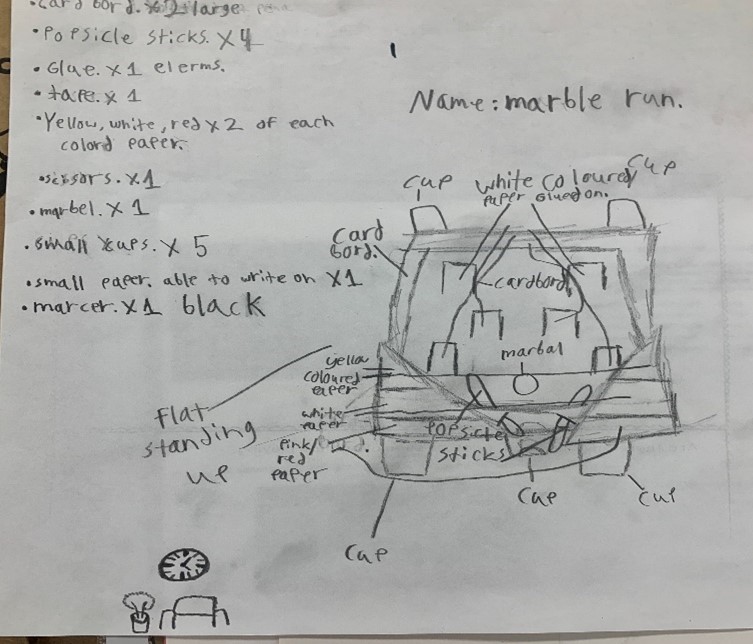 •Card bord. x2 large
•Popsicle sticks. x4
• Glue. x1 elerms.
• tape. x 1
•Yellow, white, red x2 of each
colord paper.
•sissors. x1
• marbel. x 1
• small cups. x 5
•small paper. able to write on x1
• marcer. x1 black
Name: marble run.
Cup
white coloured
paper glued on.
Cup
Card
bord.
cardbord
marbal
yellow
coloured
paper
white
paper
Pink/
red
paper
Popsicle
sticks
Flat
standing
up
Cup
Cup
Cup